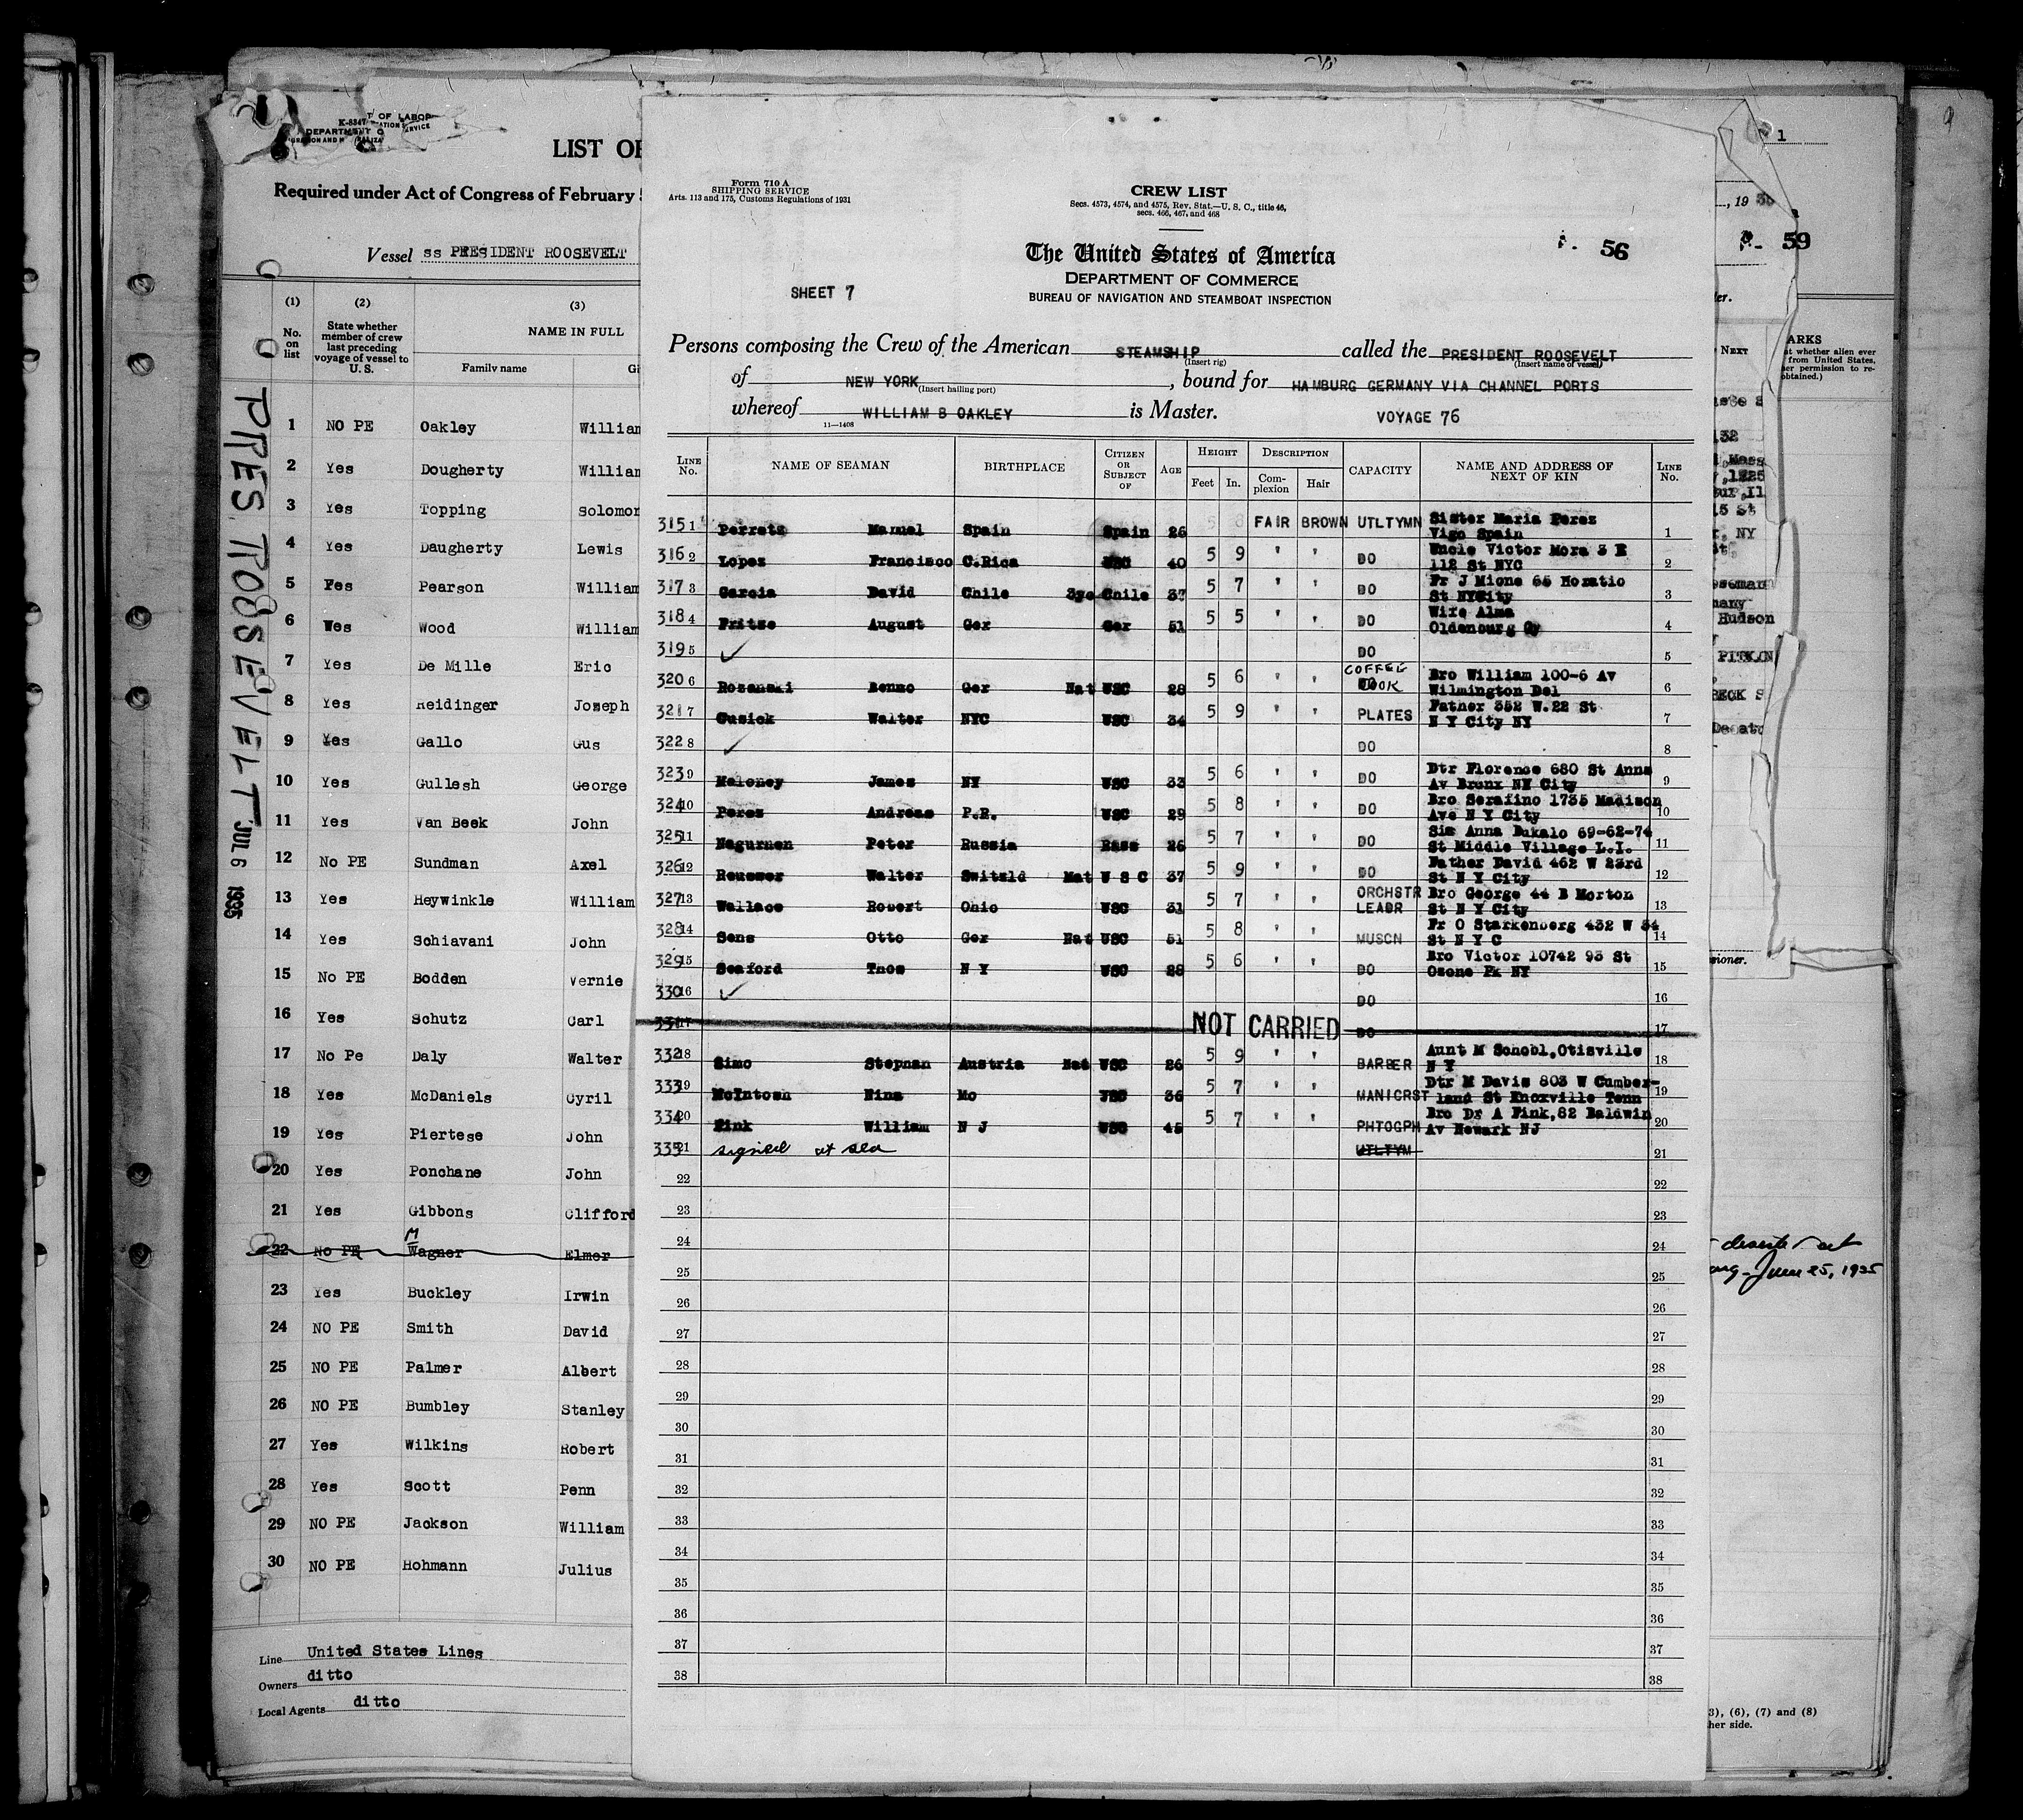 K-8347
DEPARTMENT O
T OF LABOR
LIST OF
Required under Act of Congress of February 5
Vessel ss PRESIDENT ROOSEVELT
(1) (2) (3)
No. on list
State whether member of crew last preceding voyage of vessel to U. S.
NAME IN FULL
Family name Gi
1 NO PE Oakley William
2 Yes Dougherty William
3 Yes Topping Solomon
4 Yes Daugherty Lewis
5 Yes Pearson William
6 Yes Wood William
7 Yes De Mille Eric
8 Yes Reidinger Joseph
9 Yes Gallo Gus
10 Yes Gullesh George
11 Yes Van Beek John
12 No PE Sundman Axel
13 Yes Heywinkle William
14 Yes Schiavani John
15 No PE Bodden Vernie
16 Yes Schutz Carl
17 No Pe Daly Walter
18 Yes McDaniels Cyril
19 Yes Piertese John
20 Yes Ponchane John
21 Yes Gibbons Clifford
M
22 No PE Wagner Elmer
23 Yes Buckley Irwin
24 NO PE Smith David
25 NO PE Palmer Albert
26 NO PE Bumbley Stanley
27 Yes Wilkins Robert
28 Yes Scott Penn
29 NO PE Jackson William
30 NO PE Hohmann Julius
Line United States Lines
Owners ditto
Local Agents ditto
PRES ROOSEVELT JUL 6 1935
Form 710 A
SHIPPING SERVICE
Arts. 113 and 175, Customs Regulations of 1931
CREW LIST
Secs. 4573, 4574, and 4575, Rev. Stat.—U. S. C., title 46,
secs. 466, 467, and 468
The United States of America
DEPARTMENT OF COMMERCE
BUREAU OF NAVIGATION AND STEAMBOAT INSPECTION
56
SHEET 7
Persons composing the Crew of the American STEAMSHIP called the PRESIDENT ROOSEVELT
(Insert rig) (Insert name of vessel)
of NEW YORK, bound for HAMBURG GERMANY VIA CHANNEL PORTS
(Insert hailing port)
whereof WILLIAM B OAKLEY is Master. VOYAGE 76
11—1408
LINE No. NAME OF SEAMAN BIRTHPLACE CITIZEN OR SUBJECT OF AGE HEIGHT Feet In. DESCRIPTION Complexion Hair CAPACITY NAME AND ADDRESS OF NEXT OF KIN LINE No.
315 1 Manuel Spain Spain 26 5 8 FAIR BROWN UTLTYMN Sister Maria Perez
Vigo Spain 1
316 2 Lopez Francisco C.Rica USC 40 5 9 " " DO Uncle Victor Mora 3 E
112 St NYC 2
317 3 Garcia David Chile Chile 37 5 7 " " DO Fr J Mione 65 Horatio
St NYCity 3
318 4 Fritze August Ger Ger 51 5 5 " " DO Wife Alma
Oldenburg Gy 4
319 5 ✓ DO 5
320 6 Rosanski Benno Ger Nat USC 28 5 6 " " COFFEE COOK Bro William 100-6 Av
Wilmington Del 6
321 7 Cusick Walter NYC USC 34 5 9 " " PLATES Father 352 W.22 St
N Y City NY 7
322 8 ✓ DO 8
323 9 Maloney James NY USC 33 5 6 " " DO Dtr Florence 680 St Anns
Av Bronx NY City 9
324 10 Perez Andreas P.R. USC 29 5 8 " " DO Bro Serafino 1735 Madison
Ave N Y City 10
325 11 Nagurnen Peter Russia Russ 26 5 7 " " DO Sis Anna Dukalo 69-62-74
St Middle Village L.I. 11
326 12 Walter Switzld Nat U S C 37 5 9 " " DO Father David 462 W 23rd
St N Y City 12
327 13 Wallace Robert Ohio USC 31 5 7 " " ORCHSTR LEADR Bro George 44 B Morton
St N Y City 13
328 14 Sens Otto Ger Nat USC 51 5 8 " " MUSCN Fr O Starkenberg 432 W 34
St N Y C 14
329 15 Seaford Thos N Y USC 28 5 6 " " DO Bro Victor 10742 93 St
Ozone Pk NY 15
330 16 ✓ DO 16
331 17 NOT CARRIED DO 17
332 18 Simo Stephan Austria Nat USC 26 5 9 " " BARBER Aunt M Schobl,Otisville
N Y 18
333 19 McIntosh Nina Mo USC 36 5 7 " " MANICRST Dtr M Davis 803 W Cumber-
land St Knoxville Tenn 19
334 20 Fink William N J USC 45 5 7 " " PHTOGPH Bro Dr A Fink,82 Baldwin
Av Newark NJ 20
335 21 signed at sea UTLTYM 21
22 22
23 23
24 24
25 25
26 26
27 27
28 28
29 29
30 30
31 31
32 32
33 33
34 34
35 35
36 36
37 37
38 38
1
, 19 35
59
ARKS
NEXT
, NY
Hudson
June 25, 1935
3), (6), (7) and (8)
her side.
9